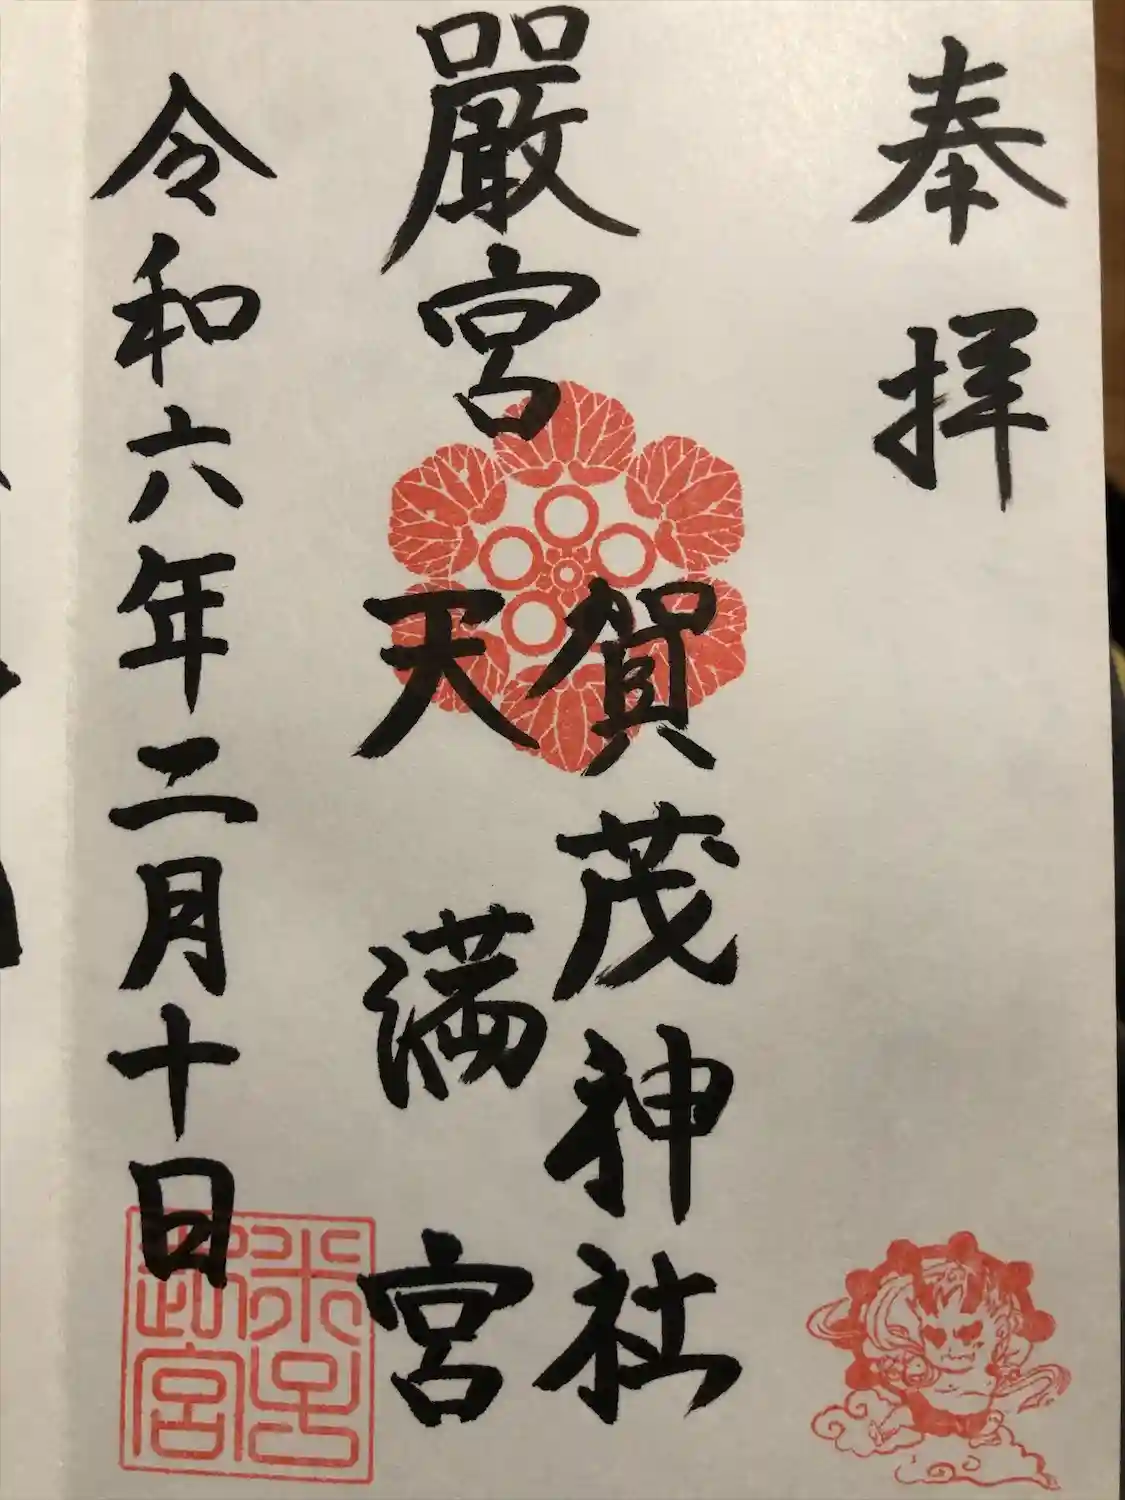 奉拝
嚴宮
賀茂神社
天満宮
令和六年二月十日